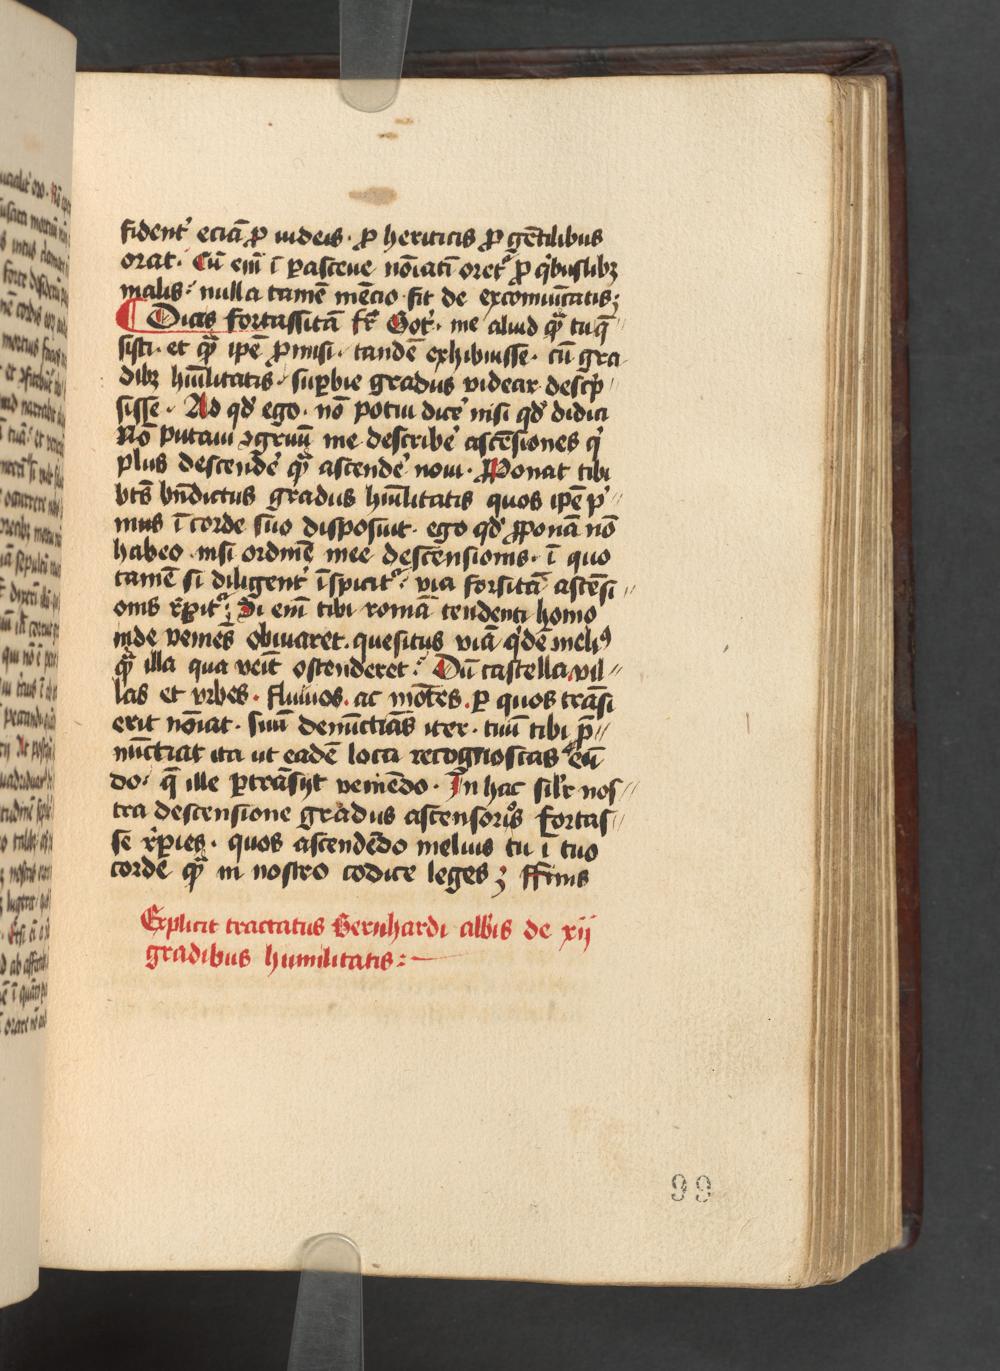 fident᷑ eciā ꝓ iudeis · ꝓ heriticis ꝓ gētilibus
orat · Cū em̄ ī ꝑasceue nōiatī oret᷑ ꝓ q̇buslibꝫ
malis · nulla tamē mēcio fit de excōmūicatis ;
¶ Dicis fortassitā fr̄ Got᷑ · me aliud qͣ̄ tu q̄〃
sisti · et qͣ̄ ip̄e ꝓmisi · tandē exhibuisse · cū gra
dibꝫ hūilitatis · suꝑbie gradus videar descp̄〃
sisse · Ad qd̕ ego · nō potui dice᷑ nisi qd̕ didici
Nō putaui ꝯgruū me describe᷑ ascēsiones q̇
plus descende᷑ qͣ̄ ascende᷑ noui · Ꝓponat tibi
bt̄s bn̄dictus gradus hūilitatis quos ip̄e ṗ〃
mus ī corde suo disposuit · ego qd̕ ꝓponā nō
habeo nisi ordinē mee descensionis · ī quo
tamē si diligent᷑ īspicit᷑ · via forsitā ascēsi〃
onis r̄ꝑit᷑ ; Si em̄ tibi romā tendenti homo
inde veniēs obiuaret · quesitus viā q̇dē meliꝰ
qͣ̄ illa qua veīt ostenderet · Dū castella vil〃
las et vrbes · fluuios · ac mōtes · ꝑ quos trāsi
erit nōiat · suū denūctiās iter · tuū tibi p̄〃
nūctiat ita ut eadē loca recognoscas eū
do · q̄ ille ꝑtrāsijt veniēdo · In hac silr̕ nos〃
tra descensione gradus ascensorios fortas〃
se r̄ꝑies · quos ascendēdo melius tu ī tuo
corde qͣ̄ in nostro codice leges ; ffinis
Explicit tractatus Bernhardi alb̄is de xij
gradibus humilitatis :
99